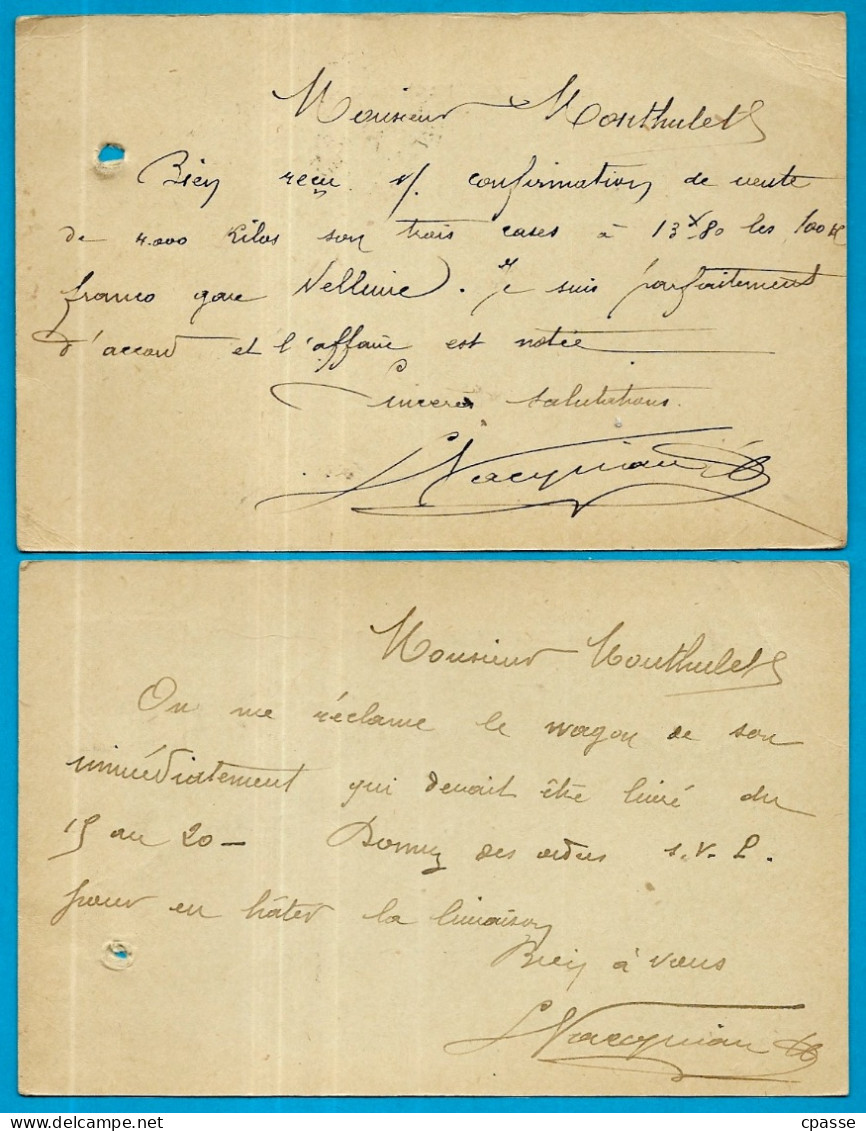 Monsieur Monthulet
Bien reçu v/. confirmation de vente
de 4.000 kilos son trois cases à 13 80 les 100 K
franco gare Velluire. Je suis parfaitement
d'accord et l'affaire est notée
Sincères salutations.
Monsieur Monthulet
On me réclame le wagon de son
immédiatement qui devait être livré du
15 au 20 - Donnez des ordres s.v.p.
pour en hâter la livraison
Bien à vous
cpasse